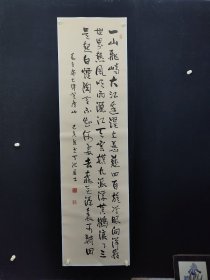 一山飛峙大江邊躍上葱蘢四百旋冷眼向洋看
世界熱風吹雨灑江天雲橫九派浮黄鶴浪下三
吴起白煙陶令不知何處去桃花源裏可耕田
毛主席七律登廬山